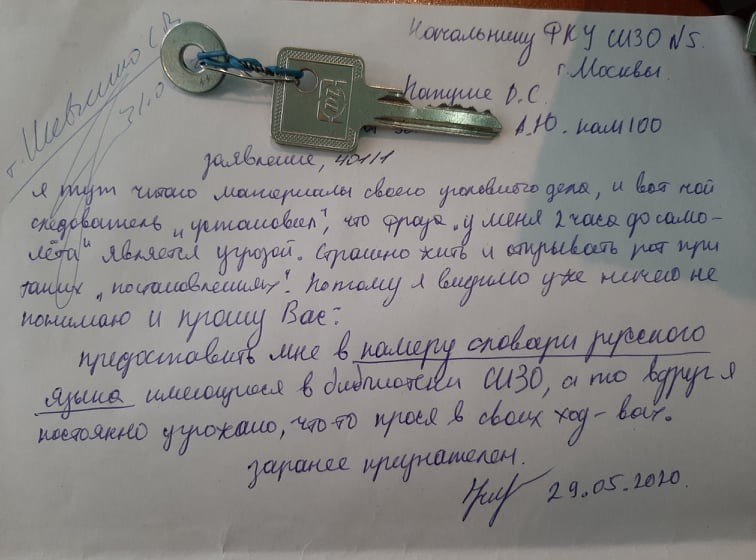 Начальнику ФКУ СИЗО №5.
г. Москвы.
Капуше В.С.
А.Ю. кам 100
г. Шевченко С.В.
31.0
заявление, 401/1
я тут читаю материалы своего уголовного дела, и вот мой
следователь „установил", что фраза „у меня 2 часа до само-
лёта" является угрозой. Страшно жить и открывать рот при
таких „постановлениях". Потому я видимо уже ничего не
понимаю и прошу Вас:
предоставить мне в камеру словари русского
языка имеющиеся в библиотеки СИЗО, а то вдруг я
постоянно угрожаю, что-то прося в своих ход-вах.
заранее признателен.
29.05.2020.